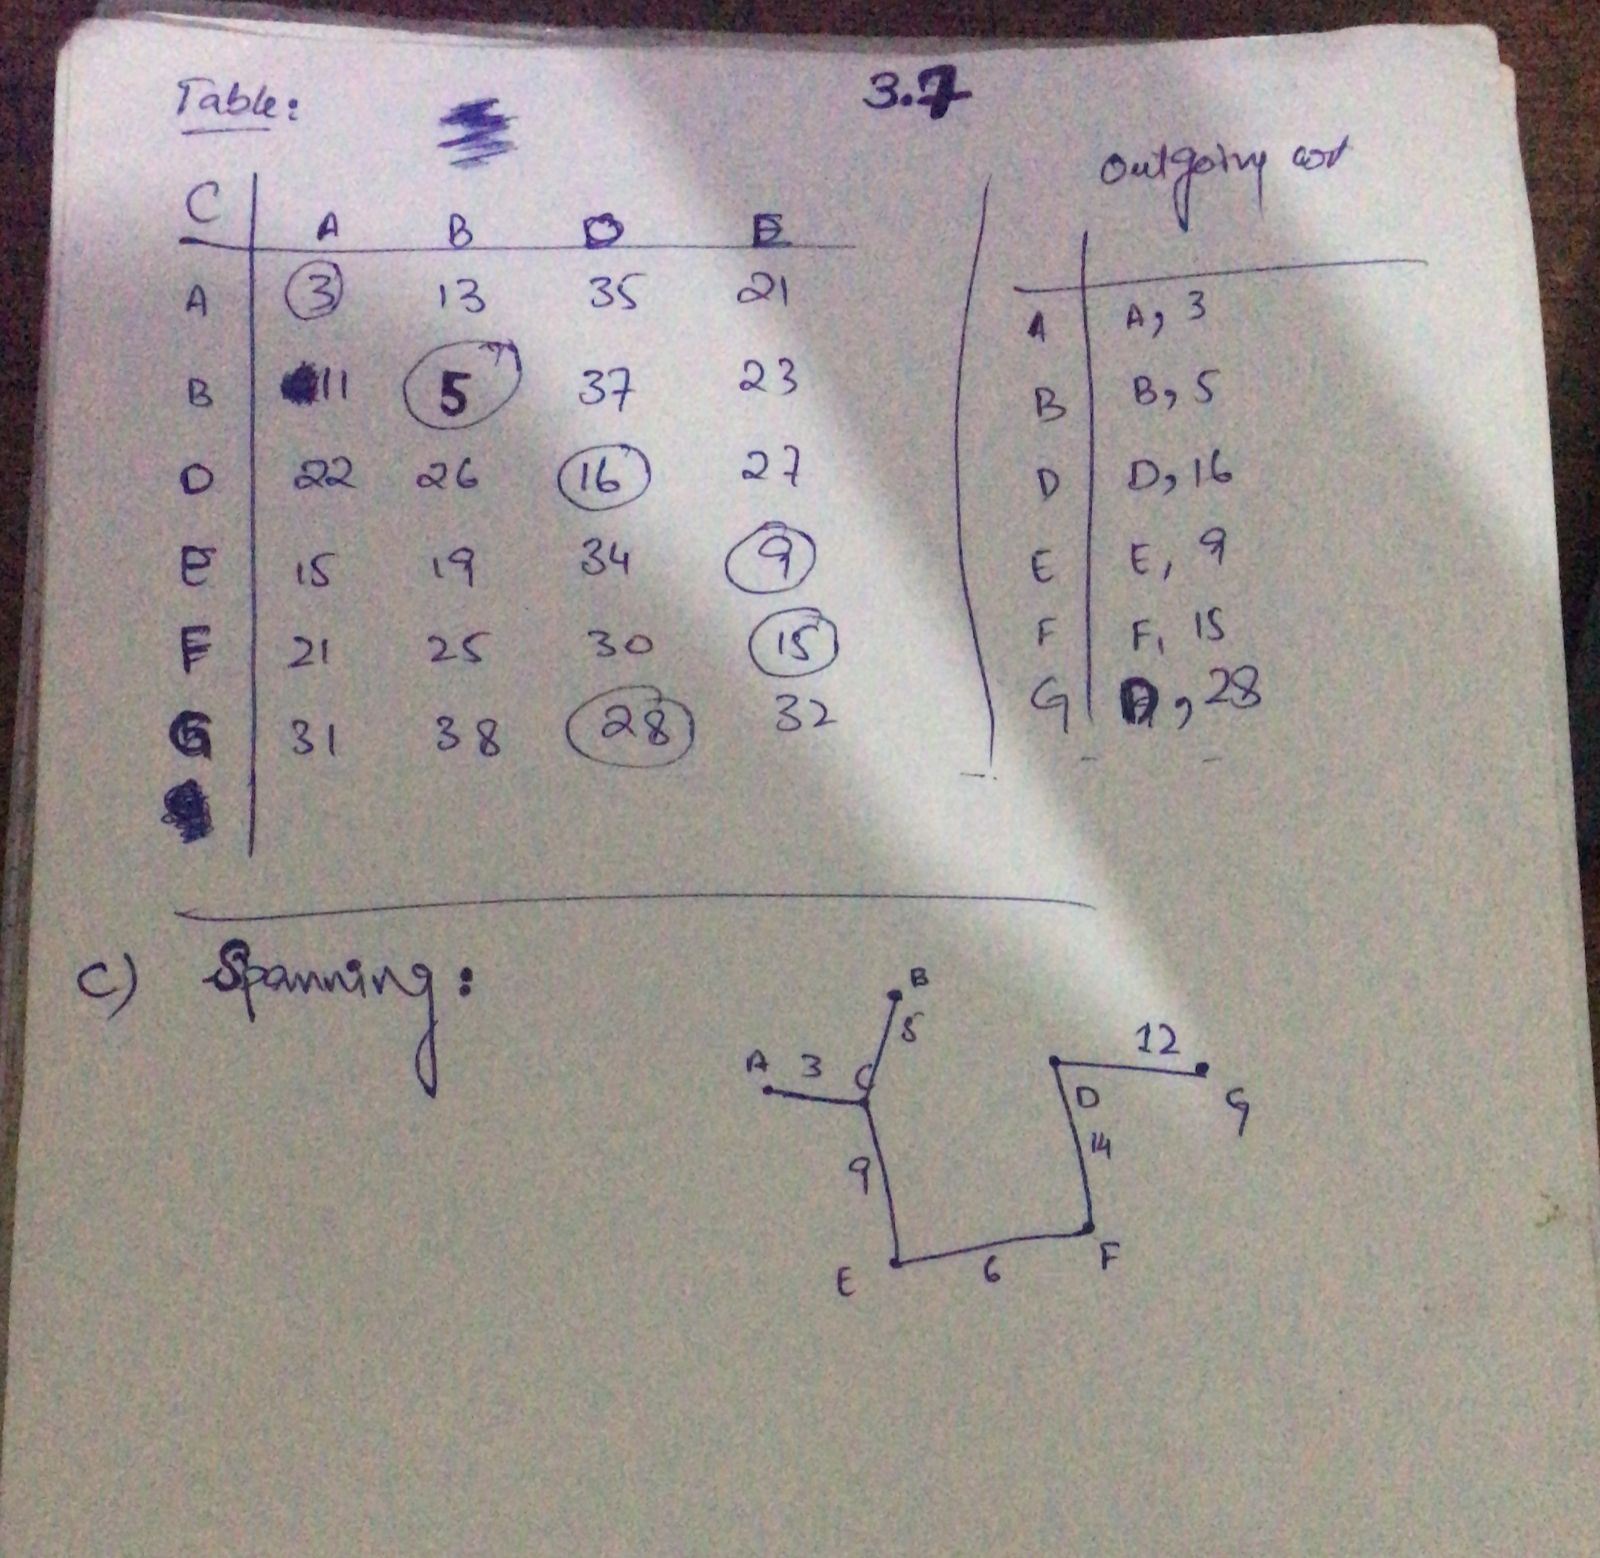 3.7
Table:
C A B D E
A 3 13 35 21
B 11 5 37 23
D 22 26 16 27
E 15 19 34 9
F 21 25 30 15
G 31 38 28 32
Outgoing
A A, 3
B B, 5
D D, 16
E E, 9
F F, 15
G , 28
C) Spanning:
B
5
A 3 C
12
D G
14
9
E 6 F